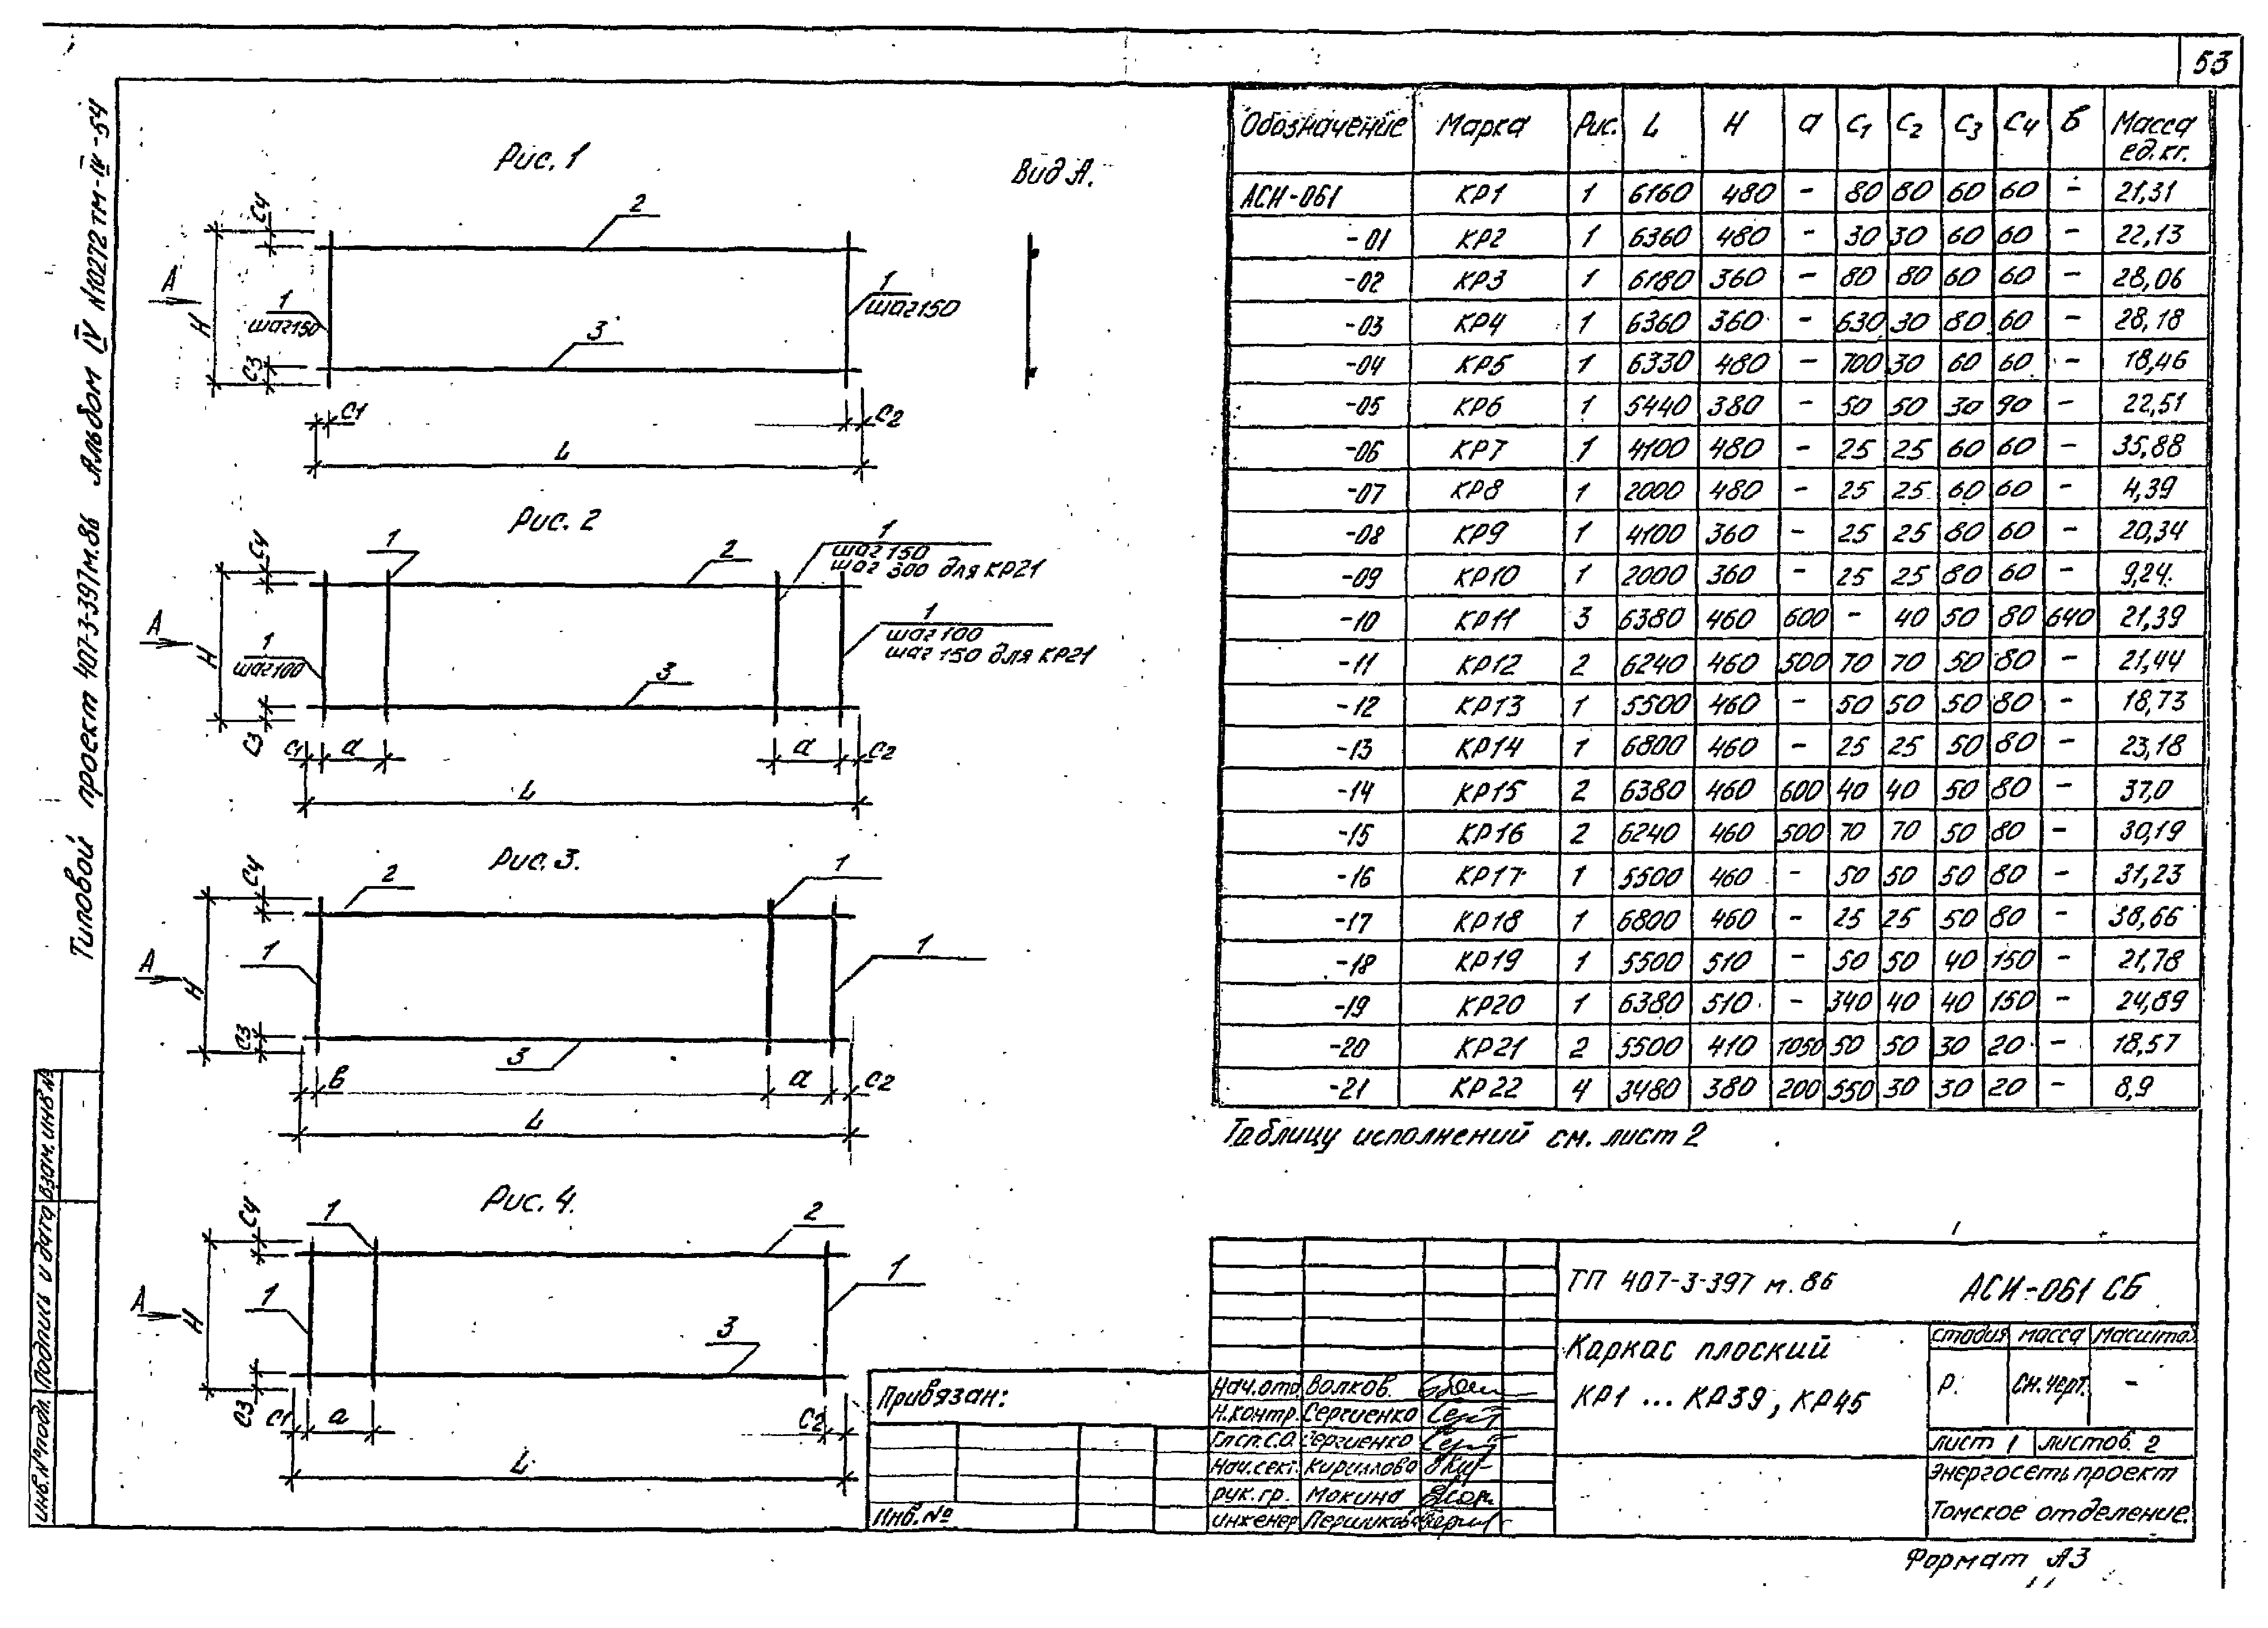 53
Типовой проект 407-3-397м.86 Альбом IV N10272тм-IV-54
Рис. 1
Вид А.
С4
2
А
Н
1
шаг150
1
шаг150
3
С3
С1
С2
L
Рис. 2
С4
1
2
1
шаг 150
шаг 300 для КР21
А
Н
1
шаг100
1
шаг 100
шаг 150 для КР21
3
С3
С1
а
а
С2
L
Рис. 3.
С4
2
1
А
Н
1
1
С3
3
в
а
С2
L
Рис. 4.
С4
1
2
А
Н
1
1
3
С3
С1
а
С2
L
Обозначение Марка Рис. L Н а С1 С2 С3 С4 б Масса ед.кг.
АСИ-061 КР1 1 6160 480 - 80 80 60 60 - 21,31
-01 КР2 1 6360 480 - 30 30 60 60 - 22,13
-02 КР3 1 6180 360 - 80 80 60 60 - 28,06
-03 КР4 1 6360 360 - 630 30 80 60 - 28,18
-04 КР5 1 6330 480 - 700 30 60 60 - 18,46
-05 КР6 1 5440 380 - 50 50 30 90 - 22,51
-06 КР7 1 4100 480 - 25 25 60 60 - 35,88
-07 КР8 1 2000 480 - 25 25 60 60 - 4,39
-08 КР9 1 4100 360 - 25 25 80 60 - 20,34
-09 КР10 1 2000 360 - 25 25 80 60 - 9,24
-10 КР11 3 6380 460 600 - 40 50 80 640 21,39
-11 КР12 2 6240 460 500 70 70 50 80 - 21,44
-12 КР13 1 5500 460 - 50 50 50 80 - 18,73
-13 КР14 1 6800 460 - 25 25 50 80 - 23,18
-14 КР15 2 6380 460 600 40 40 50 80 - 37,0
-15 КР16 2 6240 460 500 70 70 50 80 - 30,19
-16 КР17 1 5500 460 - 50 50 50 80 - 31,23
-17 КР18 1 6800 460 - 25 25 50 80 - 38,66
-18 КР19 1 5500 510 - 50 50 40 150 - 21,78
-19 КР20 1 6380 510 - 340 40 40 150 - 24,89
-20 КР21 2 5500 410 1050 50 50 30 20 - 18,57
-21 КР22 4 3480 380 200 550 30 30 20 - 8,9
Таблицу исполнений см. лист 2
ТП 407-3-397 м. 86
АСИ-061 СБ
Каркас плоский
КР1 ... КР39, КР45
стадия масса масштаб
Р. см.черт. -
лист 1 листов. 2
Энергосетьпроект
Томское отделение.
Привязан:
Инв.№
Нач.отд Волков.
Н.контр. Сергиенко
Гл.сп.С.О. Сергиенко
Нач.сект. Кириллова
рук.гр. Мокина
инженер Першикова
Взам.инв№
Подпись и дата
Инв.№подл.
Формат А3